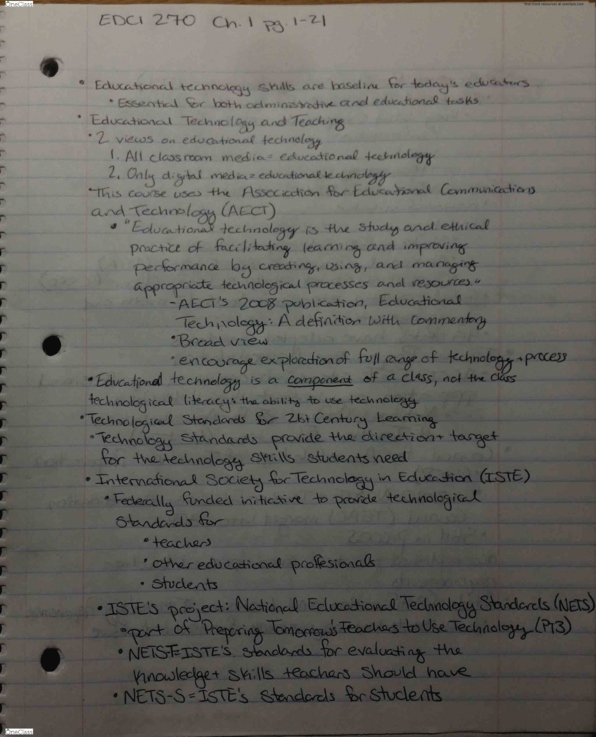 OneClass
EDCI 270 Ch. 1 pg. 1-21
• Educational technology skills are baseline for today's educators
• Essential for both administrative and educational tasks
• Educational Technology and Teaching
• 2 views on educational technology
1. All classroom media = educational technology
2. Only digital media = educational technology
• This course uses the Association for Educational Communications
and Technology (AECT)
• "Educational technology is the study and ethical
practice of facilitating learning and improving
performance by creating, using, and managing
appropriate technological processes and resources."
- AECT's 2008 publication, Educational
Technology: A definition with commentary
• Broad view
• encourage exploration of full range of technology + process
• Educational technology is a component of a class, not the class
technological literacy: the ability to use technology
• Technological Standards for 21st Century Learning
• Technology standards provide the direction + target
for the technology skills students need
• International Society for Technology in Education (ISTE)
• Federally funded initiative to provide technological
standards for
• teachers
• other educational profesionals
• students
• ISTE's project: National Educational Technology Standards (NETS)
• part of Preparing Tomorrow's Teachers to Use Technology (PT3)
• NETS-T = ISTE's standards for evaluating the
knowledge + skills teachers should have
• NETS-S = ISTE's standards for students
OneClass